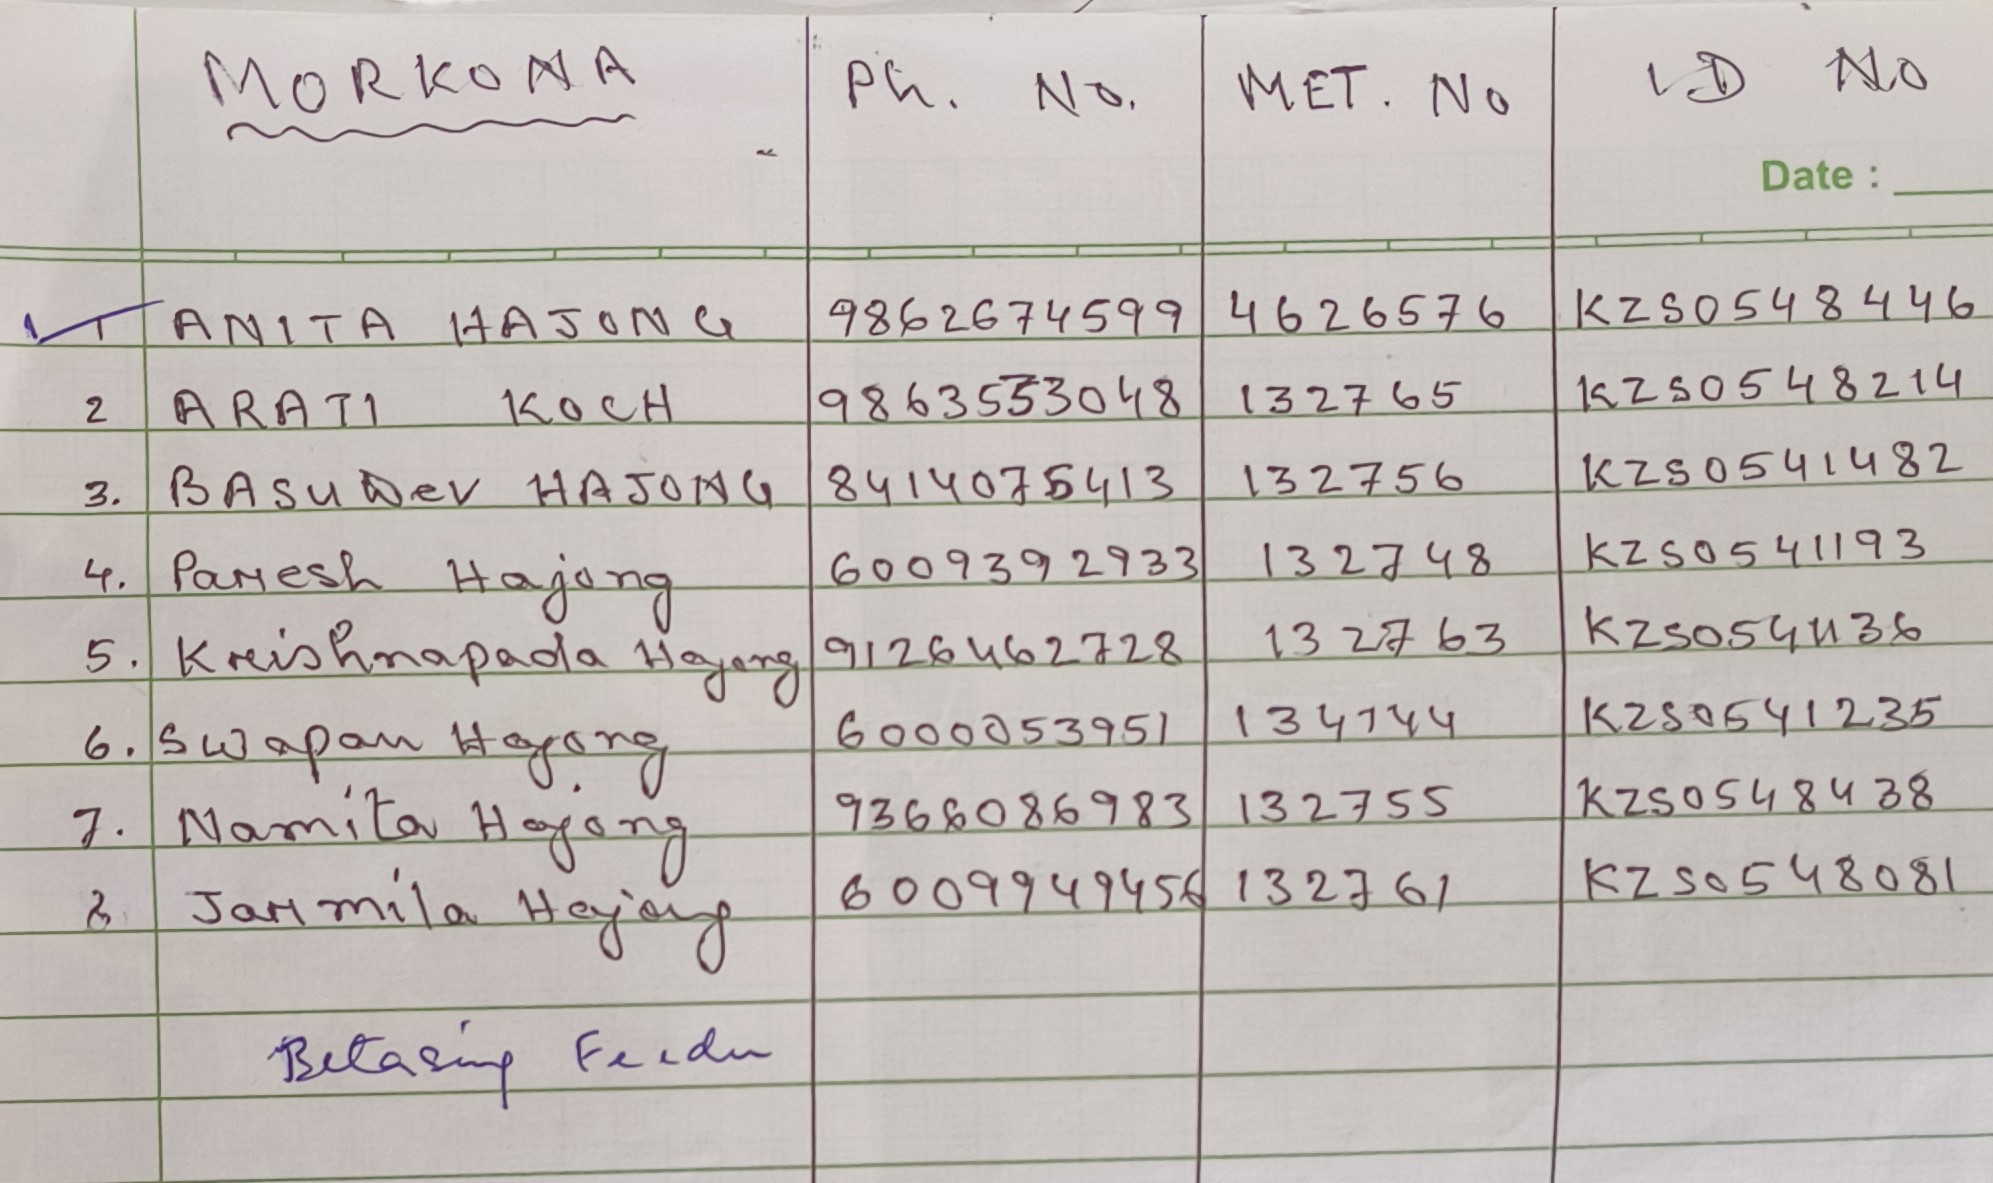 MORKONA Ph. No. MET. No ID No
Date :
1 ANITA HAJONG 9862674599 4626576 KZS0548446
2 ARATI KOCH 9863553048 132765 KZS0548214
3. BASUDev HAJONG 8414075413 132756 KZS0541482
4. Paresh Hajong 6009392933 132748 KZS0541193
5. Kreishnapada Hajong 9126462728 132763 KZS0541136
6. Swapan Hajong 6000053951 134744 KZS0541235
7. Namita Hajong 9366086983 132755 KZS0548438
8. Jarmila Hajong 6009949456 132761 KZS0548081
Betasing Feeder